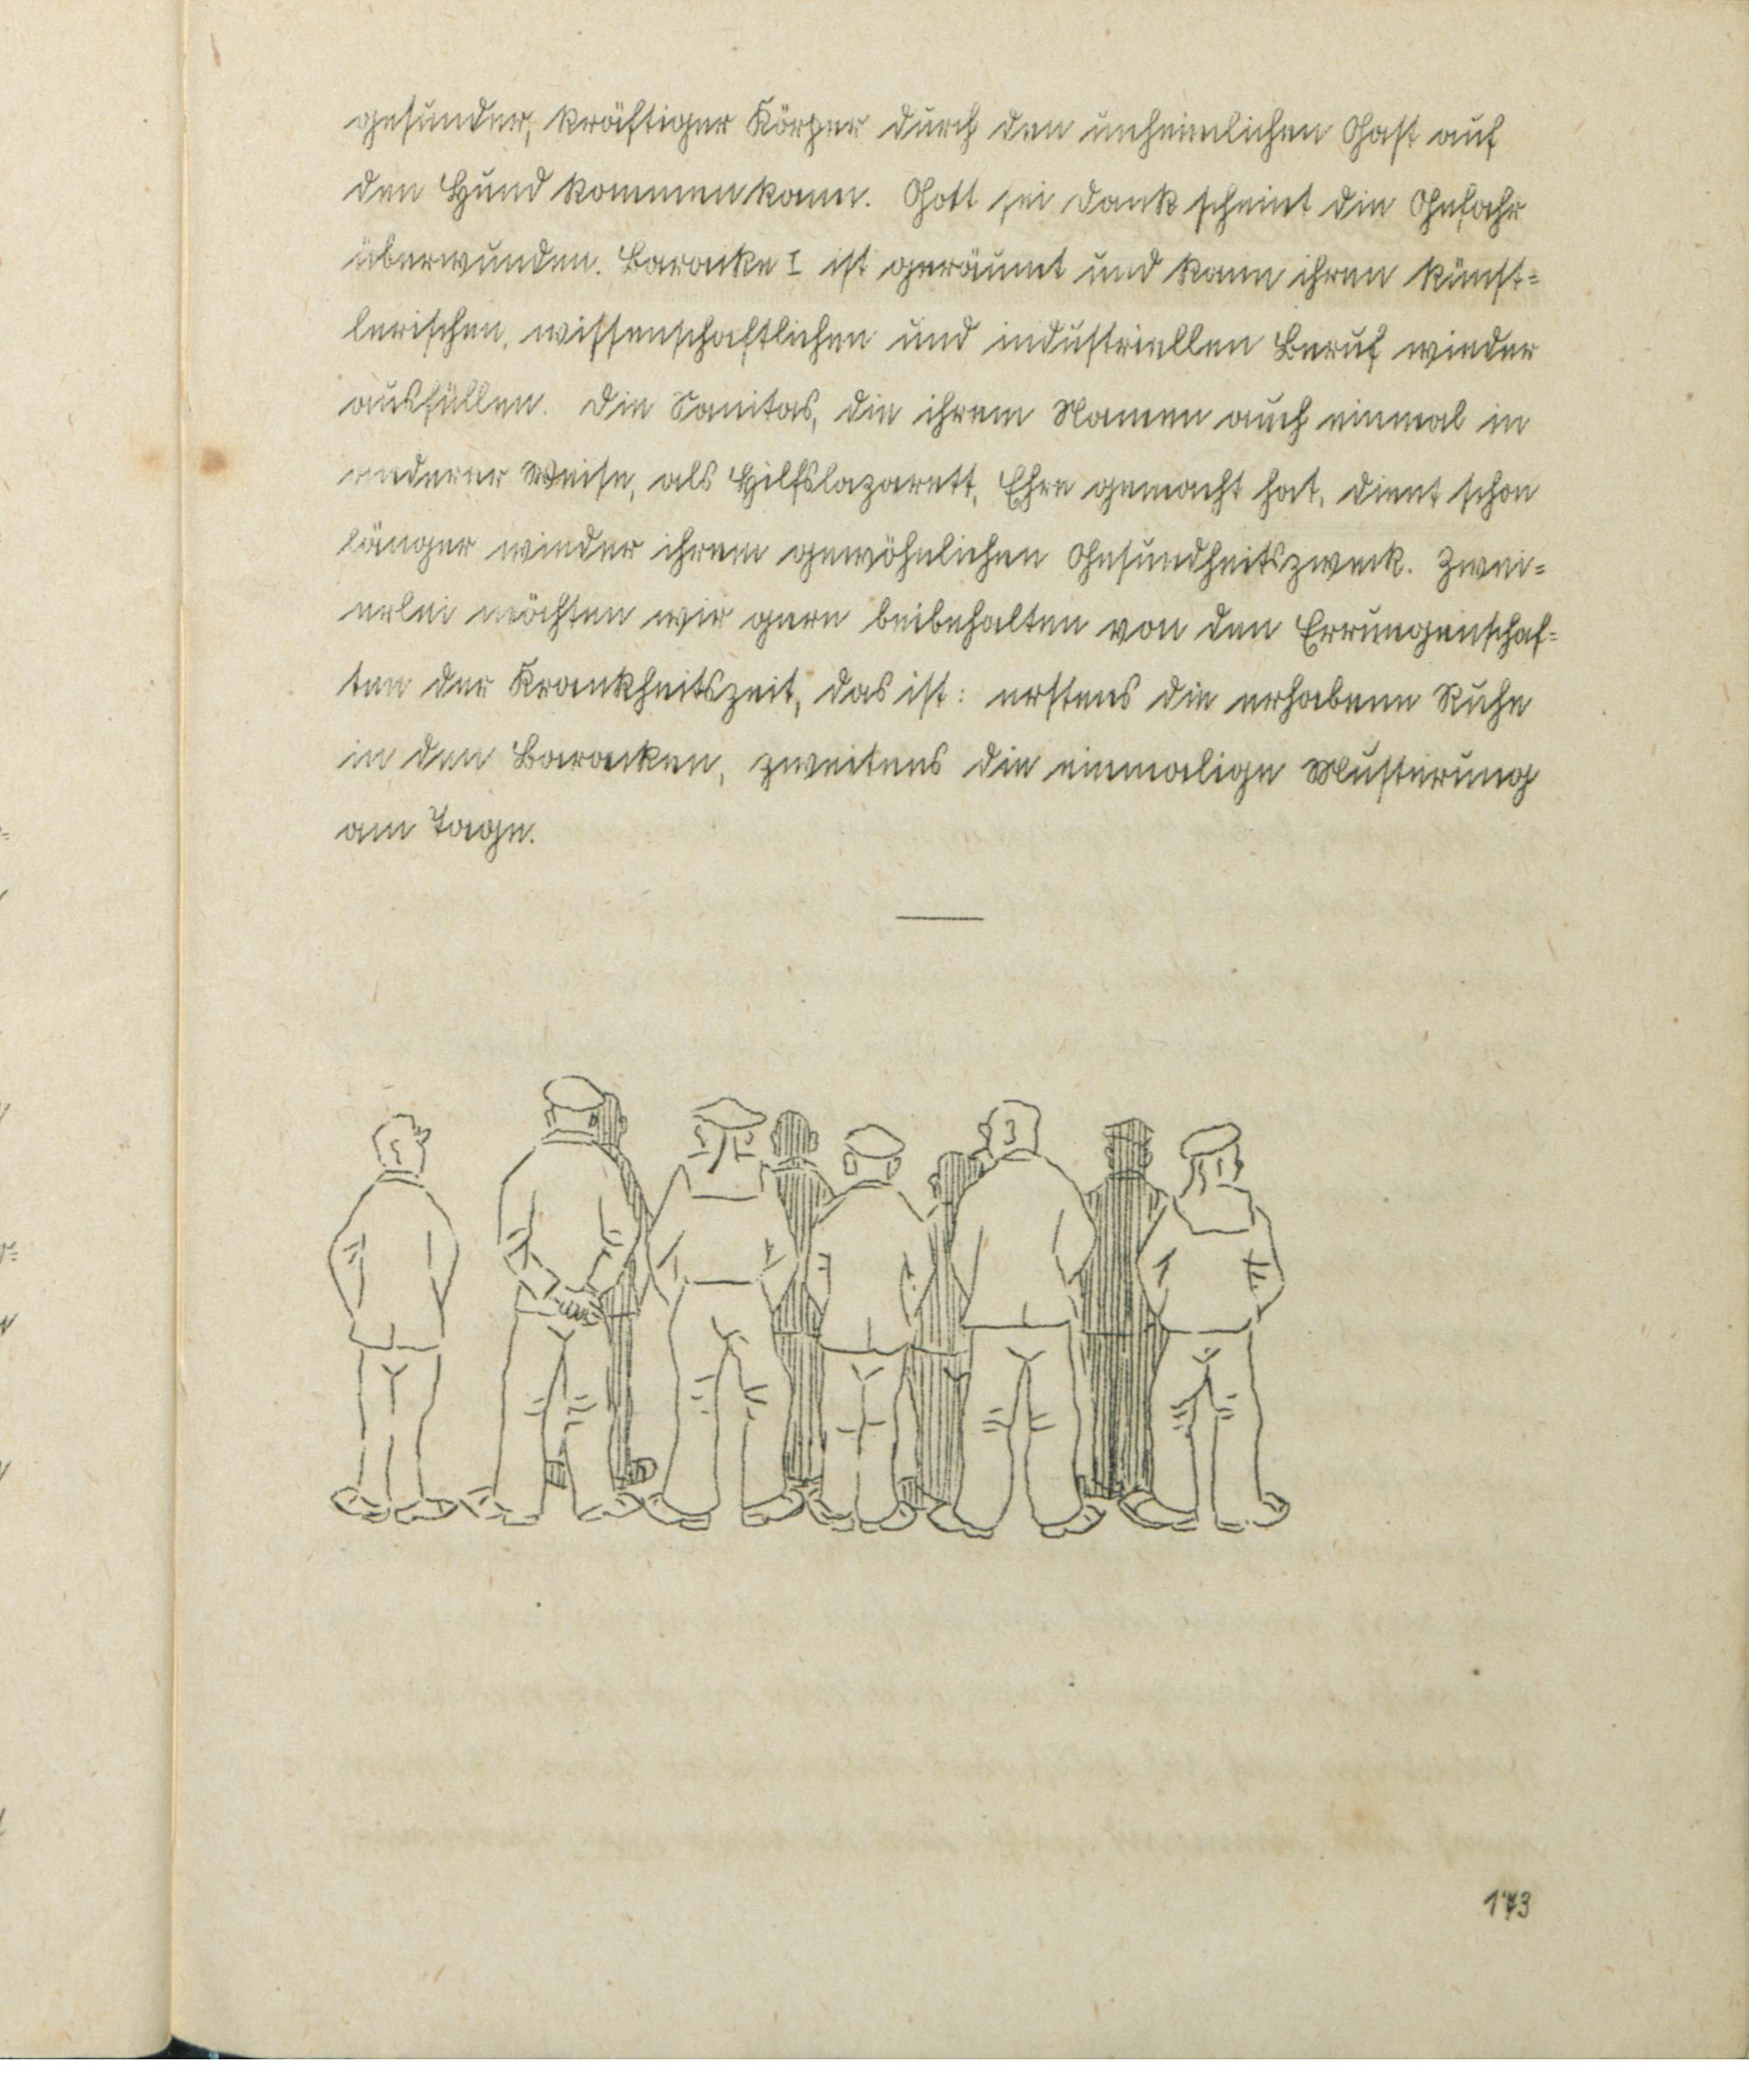 gesunder, kräftiger Körper durch den unheimlichen Gast auf
den Hund kommen kann. Gott sei Dank scheint die Gefahr
überwunden. Baracke I ist geräumt und kann ihren künst=
lerischen, wissenschaftlichen und industriellen Beruf wieder
ausfüllen. Die Sanitas, die ihrem Namen auch einmal in
anderer Weise, als Hilfslazarett, Ehre gemacht hat, dient schon
länger wieder ihrem gewöhnlichen Gesundheitszweck. Zwei=
erlei möchten wir gern beibehalten von den Errungenschaf=
ten der Krankheitszeit, das ist: erstens die erhabene Ruhe
in den Baracken, zweitens die einmalige Musterung
am Tage.
173